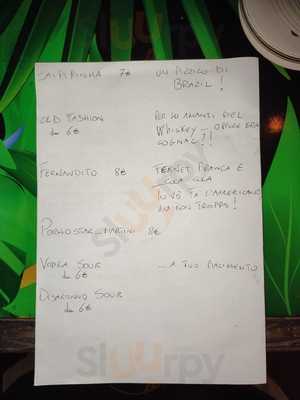 CAIPIRINHA 7€ UN PIZZICO DI
BRAZIL!
OLD FASHION
da 6€
PER GLI AMANTI DEL
WHISKEY... OPPURE ERA
COGNAC?!
FERNANDITO 8€
FERNET BRANCA E
COCA COLA
TUVÒ FA L'AMERICANO
MA NON TROPPO!
PORNOSTAR MARTINI 8€
VODKA SOUR
da 6€
...A TUO PIACIMENTO
DISARONNO SOUR
da 6€
sluurpy
sluurpy
sluurpy